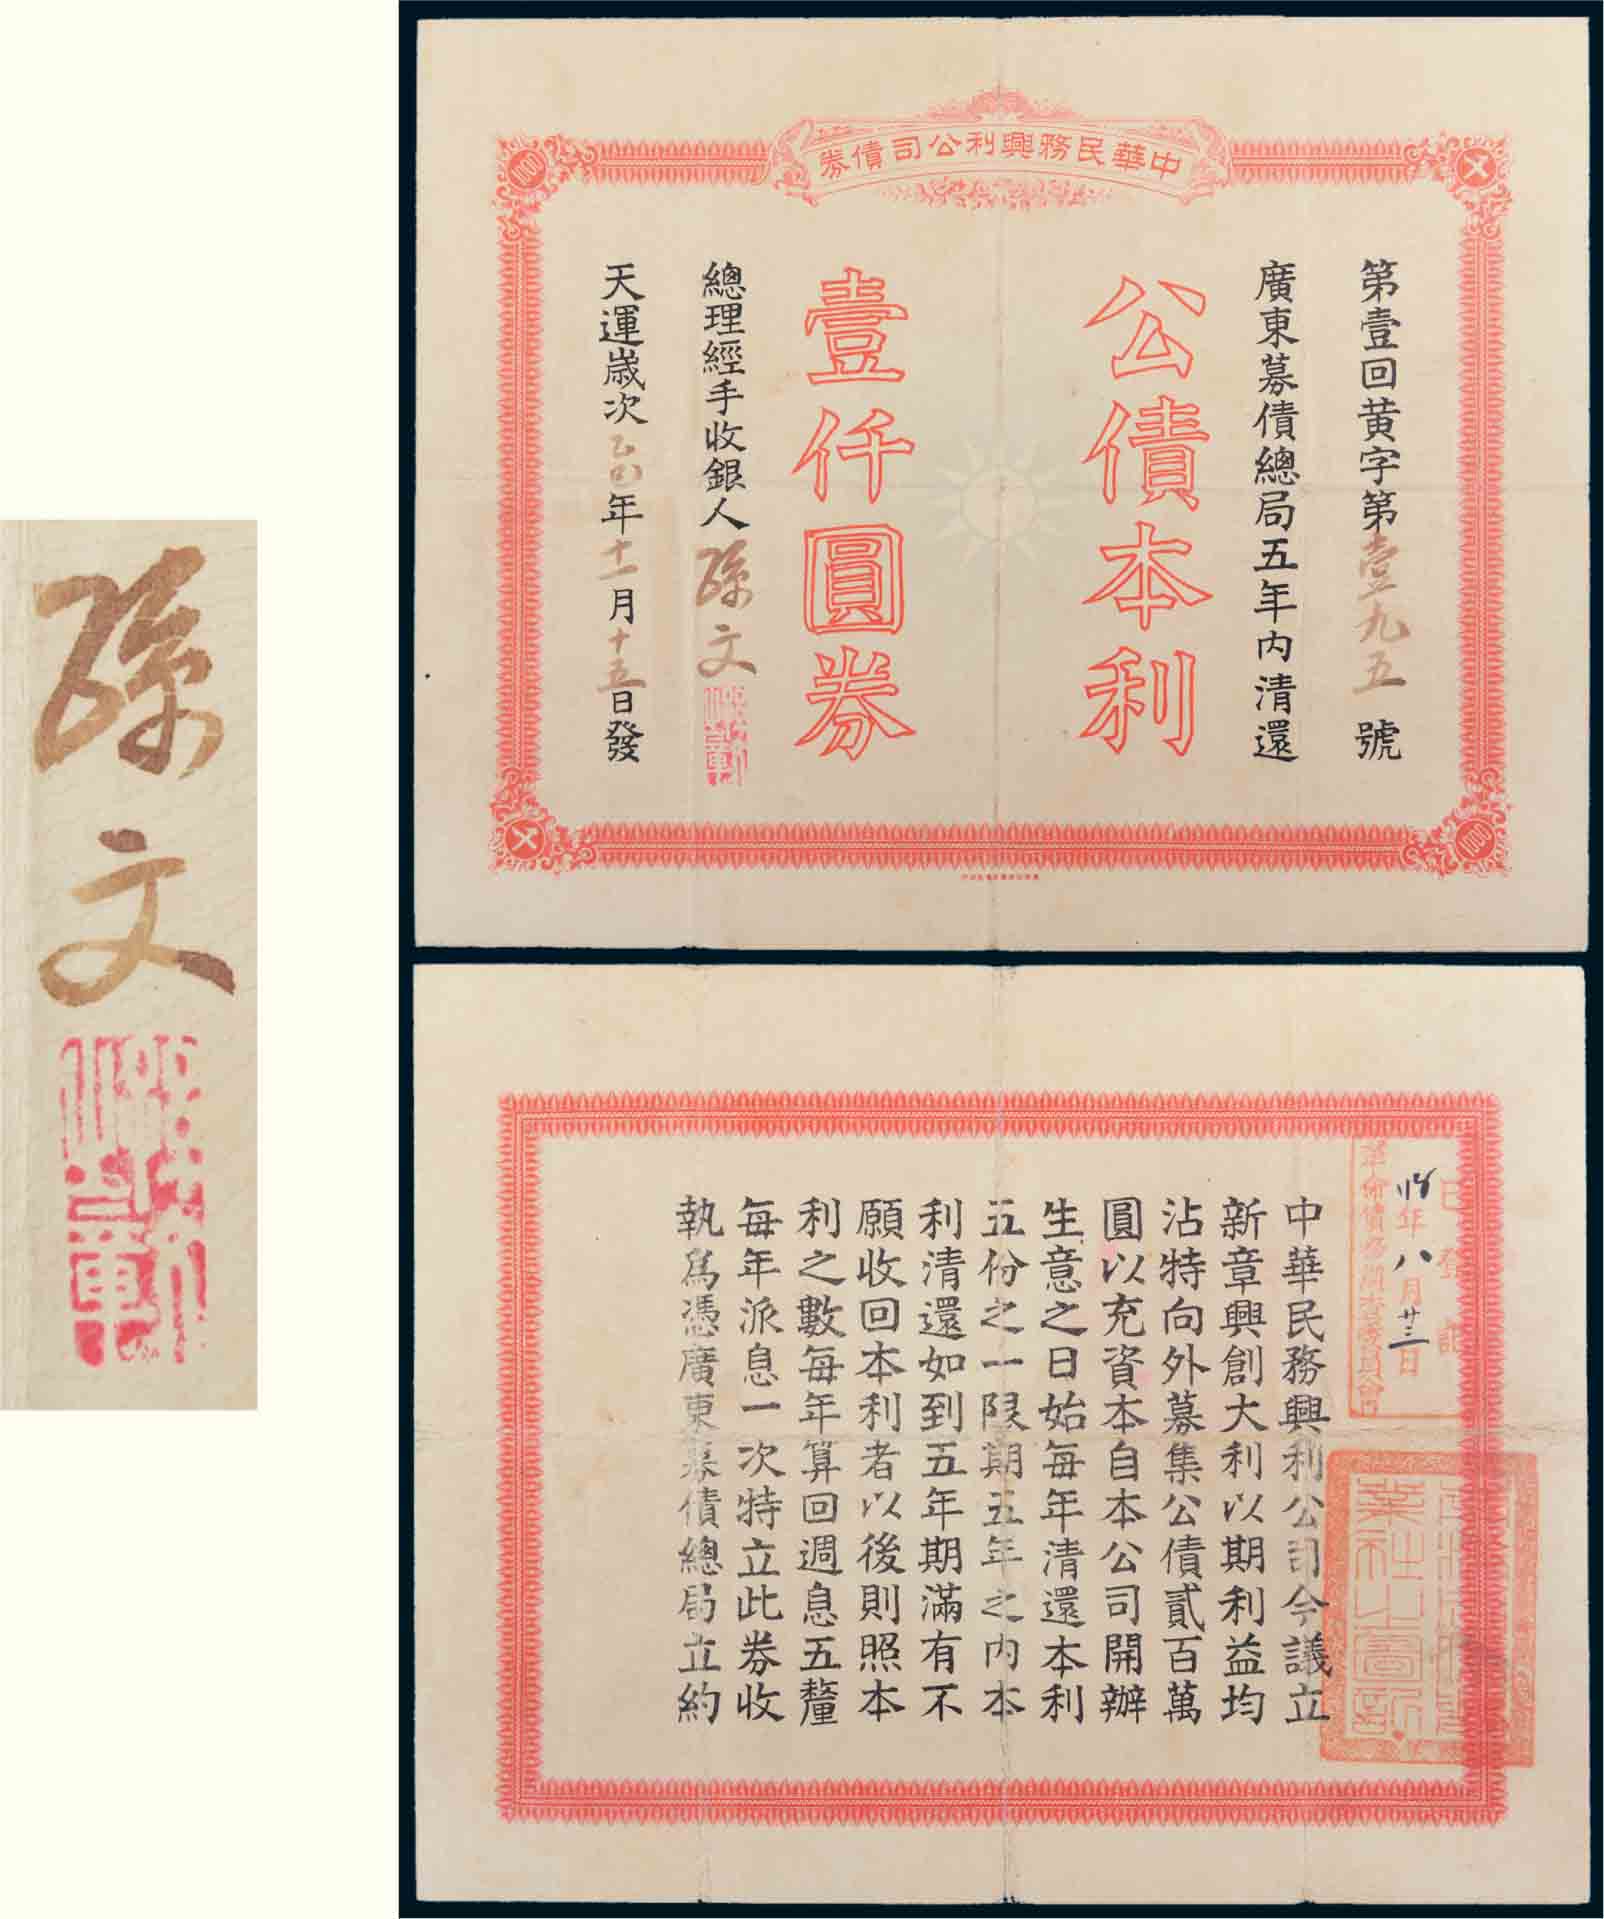 孫文
中華民務興利公司債券
1000
第壹回黃字第壹九五號
廣東募債總局五年內清還
公債本利
壹仟圓券
總理經手收銀人孫文
天運歲次乙巳年十一月十五日發
1000
已登記
年八月廿三日
革命債務調查委員會
中華民務興利公司今議立
新章興創大利以期利益均
沾特向外募集公債貳百萬
圓以充資本自本公司開辦
生意之日始每年清還本利
五份之一限期五年之內本
利清還如到五年期滿有不
願收回本利者以後則照本
利之數每年算回週息五釐
每年派息一次特立此券收
執為憑廣東募債總局立約